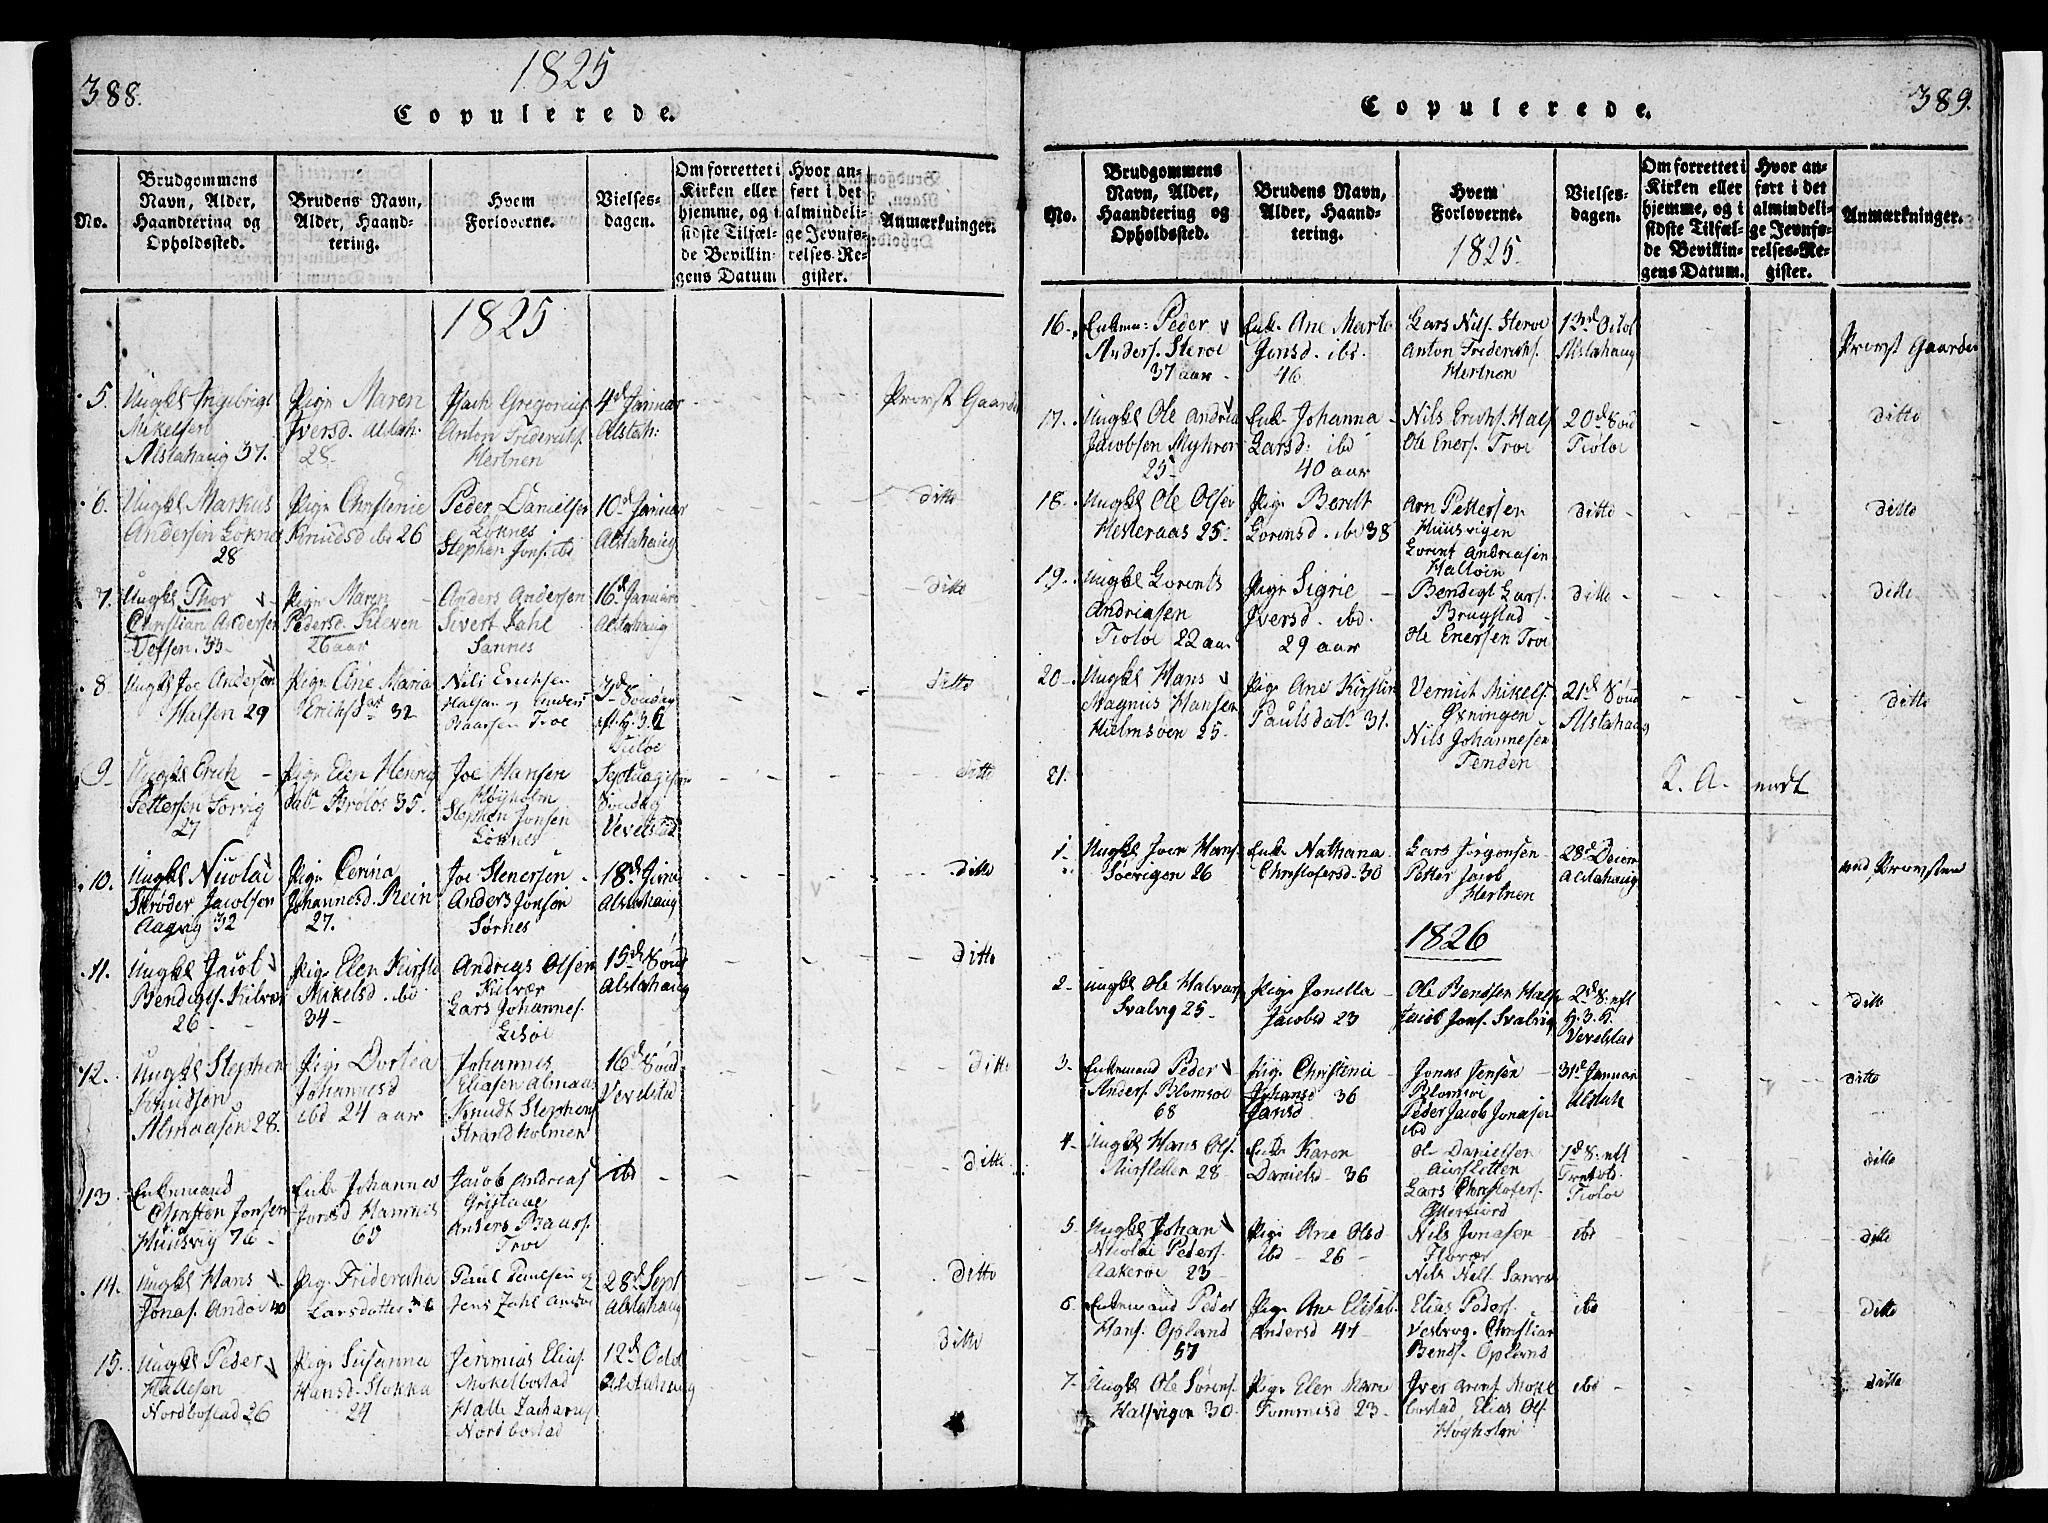 388.
1825
Copulerede.
No.
Brudgommens Navn, Alder, Haandtering og Opholdssted.
Brudens Navn, Alder, Haandtering.
Hvem Forloverne.
Vielsesdagen.
Om forrettet i Kirken eller hjemme, og i sidste Tilfælde Bevillingens Datum
Hvor anført i det almindelige Jevnførelses-Register.
Anmærkninger.
1825
5. Ungkl Ingebrigt Mikelsen Alstahaug 37.
Pige Maren Iversd. Alstah: 28
Isach Gregorius Anton Friderichs. Hertnen
4d Januar Alstah:
Provst Gaarde
6. Ungkl Markus Andersen Löknes 28
Pige Christenie Knudsd ibd 26
Peder Danielsen Löknes Stephen Jons. ibd
10d Januar Alstahaug
ditto
7. Ungkl Thor Christian Andersen Vefsen 33
Pige Maren Pedersd Kleven 26 aar
Anders Andersen Sivert Zahl Sannes
16d Januar Alstahaug
ditto
8. Ungkl Joe Andersen Halsen 29
Pige Ane Maria Eriksdat 32
Nils Erichsen Halsen og Baarsen Troe
3d Søndag eft. H. 3 K
ditto
9. Ungkl Erich Pettersen Sorvig 27
Pige Elen Henrigdatr Brölös 35.
Joe Hansen Høyholm Stephen Jonsen Löknes
Septuagesim Søndag Vevelstad
ditto
10. Ungkl Nicolai Skrøder Jacobsen Aagvig 32
Pige Cerina Johannesd. Rein 27.
Joe Stenersen Anders Jonsen Sørnes
18d Juni Alstahaug
ditto
11. Ungkl Jacob Bendigts. Kilvær 26
Pige Elen Kirstn Mikelsd. ibd 34
Andreas Olsen Kilvær Lars Johannes.
15d Sønd Alstahaug
ditto
12. Ungkl Stephen Knudsen Almaasen 28.
Pige Dortea Johannesd ibd 24 aar
Johannes Eliasen Almaas Knudt Stephens Strandholmen
16d Sønd Vevelstad
ditto
13. Enkemand Christen Jonsen Huusvig 76
Enke Johanna Jonsd Hamnes 65
Jacob Andreas Anders Baars. Troe
ibd
ditto
14. Ungkl Hans Jonas. Andöe 40
Pige Friderecha Larsdatter
Paul Paulsen og Jens Zahl Andöe
28d Sept Alstahaug
ditto
15. Ungkl Peder Hallesen Nordbostad 26
Pige Susanna Hansd Stokka 24
Jerimias Elias. Mokelbostad Halle Zacharies Nordbostad
12d Octob Alstahaug
ditto
389.
Copulerede.
No.
Brudgommens Navn, Alder, Haandtering og Opholdssted.
Brudens Navn, Alder, Haandtering.
Hvem Forloverne.
1825.
Vielsesdagen.
Om forrettet i Kirken eller hjemme, og i sidste Tilfælde Bevillingens Datum.
Hvor anført i det almindelige Jevnførelses-Register.
Anmærkninger.
16. Enkem: Peder Anders. Steroe 37 aar
Enke Ane Marte Jonsd. ibd. 46
Lars Nils. Steroe Anton Friderichs. Hertnen
13d Octob Alstahaug
Provst Gaarde
17. Ungkl Ole Andrea Jacobsen Myhren 25
Enke Johanna Larsd: ibd 40 aar
Nils Erichs. Hals Ole Eners. Troe
20d Sønd Tioloe
ditto
18. Ungkl Ole Olsen Hesteraas 25
Pige Berdt Lorensd. ibd 38
Arn Pettersen Huusvigen Lorent Andreasen
ditto
ditto
19. Ungkl Lorents Andreasen Tioloe 22 aar
Pige Sigrie Iversd. ibd. 29 aar
Bendigt Lars. Brugstad Ole Enersen Troe
ditto
ditto
20 Ungkl Hans Magnus Hansen Hielmsøen 25
Pige Ane Kirstin Paulsdatr 31.
Vernich Mikels. Øxningen Nils Johannesen Tenden
21d Sønd Alstahaug
ditto
21.
K. A. endt
1. Ungkl Joen Hans. Søevigen 26
Enke Nathana Christofersd. 30
Lars Jørgensen Petter Jacob Hertnen
28d Decem Alstahaug
ved Provsten
1826
2. Ungkl Ole Halvars Svalvig 25
Pige Jonella Jacobsd 23
Ole Bendsen Hals Jacob Jons. Svalvig
2d S. eft H. 3. K. Vevelstad
ditto
3. Enkemand Peder Anders. Blomsøe 68
Pige Christenie Johansd Jansd 36
Jonas Jensen Blomsøe Peder Jacob Jonasen ibd
31d Januar Alstah
ditto
4. Ungkl Hans Ols. Aursletten 28
Enke Karen Danielsd 36
Ole Danielsen Aursletten Lars Christofers.
1d S. eft Tioloe
ditto
5. Ungkl Johan Nicolai Peders. Aakeroe 23
Pige Ane Olsd ibd 26
Nils Jonasen Flovær Nils Nils.
ibd
ditto
6. Enkemand Peder Hans. Opland 57
Pige Ane Elisab. Andersd 47
Elias Peders. Christian Bends. Opland
ibd
ditto
7. Ungkl Ole Sørens. Halsvigen 30
Pige Elen Mare Tommesd 23
Iver Arens. Mokelbostad Elias Ols Høyholm
ibd
ditto